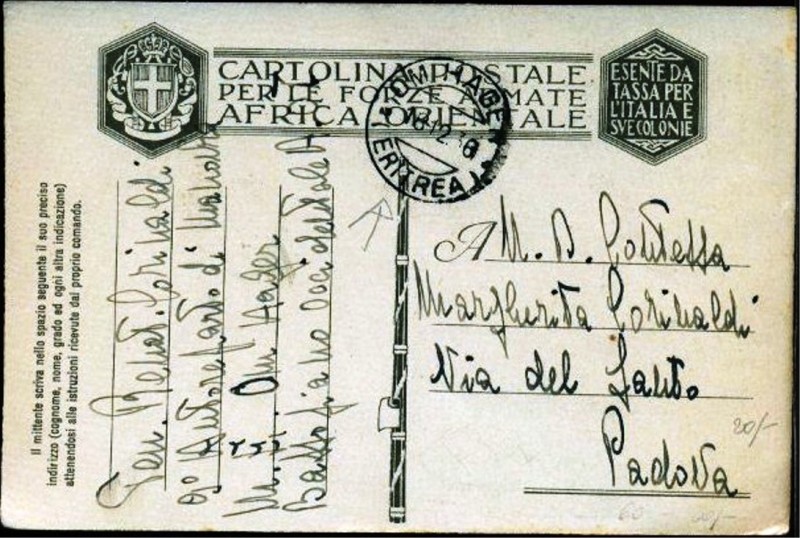 CARTOLINA POSTALE
PER LE FORZE ARMATE
AFRICA ORIENTALE
ESENTE DA
TASSA PER
L'ITALIA E
SVE COLONIE
OM HAGER
ERITREA
Il mittente scriva nello spazio seguente il suo preciso
indirizzo (cognome, nome, grado ed ogni altra indicazione)
attenendosi alle istruzioni ricevute dal proprio comando.
Corinaldi
9° Autoreparto di
Om Hager
Bassopiano occidentale
A N. D. Contessa
Margherita Corinaldi
Via del Santo
Padova
20/-